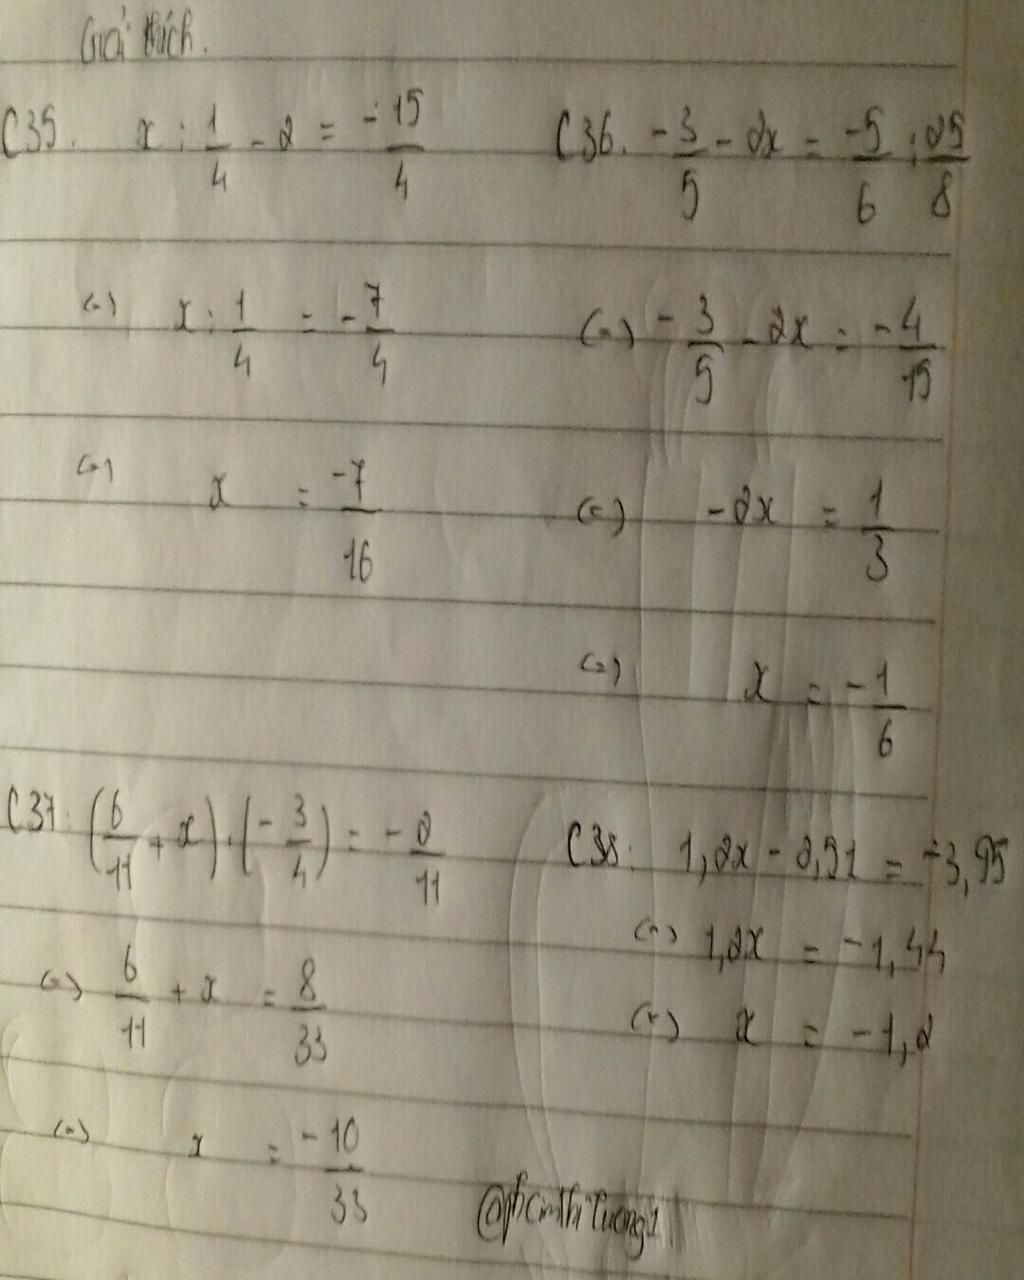 Giải thích.
C35. x : 1/4 - 2 = -15/4
(=) x : 1/4 = -7/4
(=) x = -7/16
C36. -3/5 - 2x = -5/6 : 25/8
(=) -3/5 - 2x = -4/15
(=) -2x = 1/3
(=) x = -1/6
C37: (6/11 + x) . (-3/4) = -2/11
(=) 6/11 + x = 8/33
(=) x = -10/33
C38: 1,2x - 2,51 = -3,95
(=) 1,2x = -1,44
(=) x = -1,2